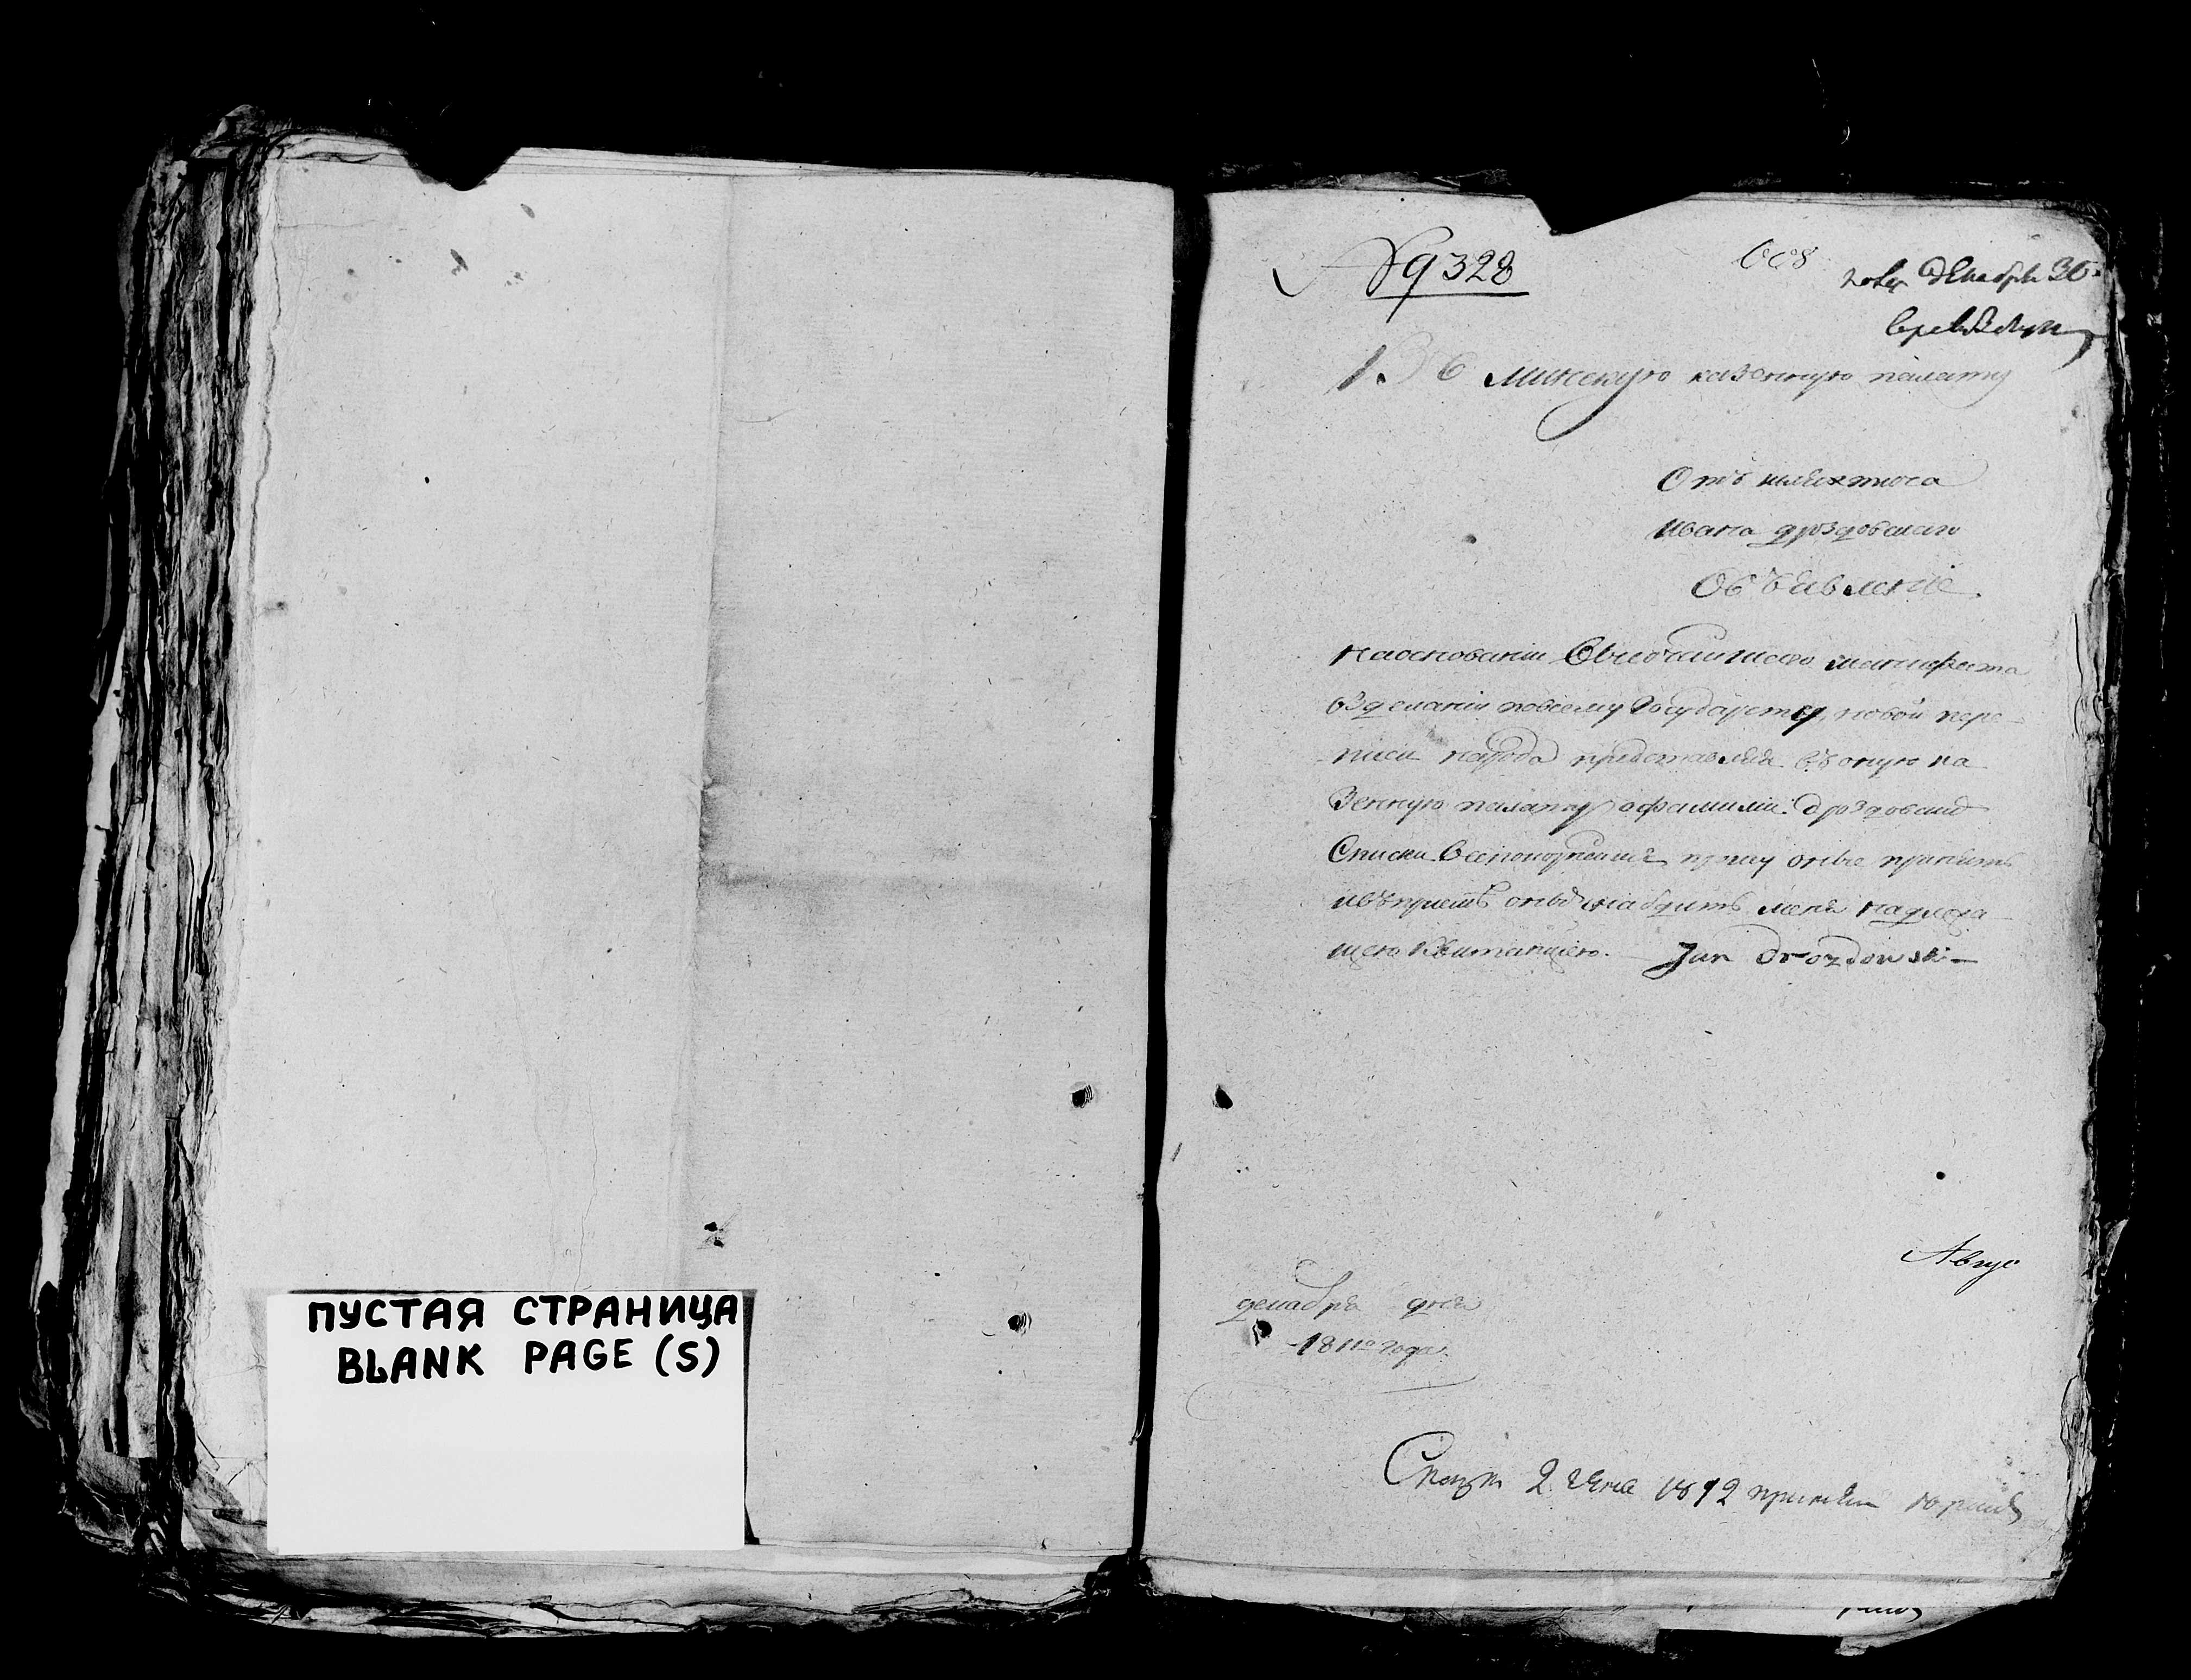 ПУСТАЯ СТРАНИЦА
BLANK PAGE (S)
№ 9328
декабря 30
Въ минскую казенную палату
Отъ шляхтича
Ивана дроздовскаго
Объявленіе.
на основаніи Высочайшаго манифеста
о зделаніи повсему Государству новой пере-
писи народа представляя въ оную ка
зенную палату о фамиліи дроздовскихъ
Списки всепокорнейше прошу оные принять
ивъ пріеме оныхъ снабдить меня надлежа-
щею квитанцiею. Jan Drozdowski
декабря дня
1811го года.
2 Генва 1812 принялъ